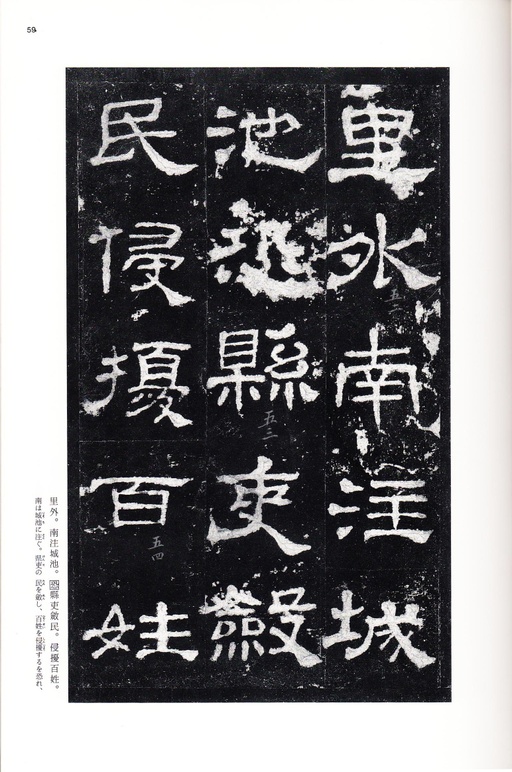 59
里外南注城
池恐縣吏斂
民侵擾百姓
五三
五四
里外。南注城池。恐縣吏斂民。侵擾百姓。
南は城池に注ぐ。県吏の民を斂し、百姓を侵擾するを恐れ、